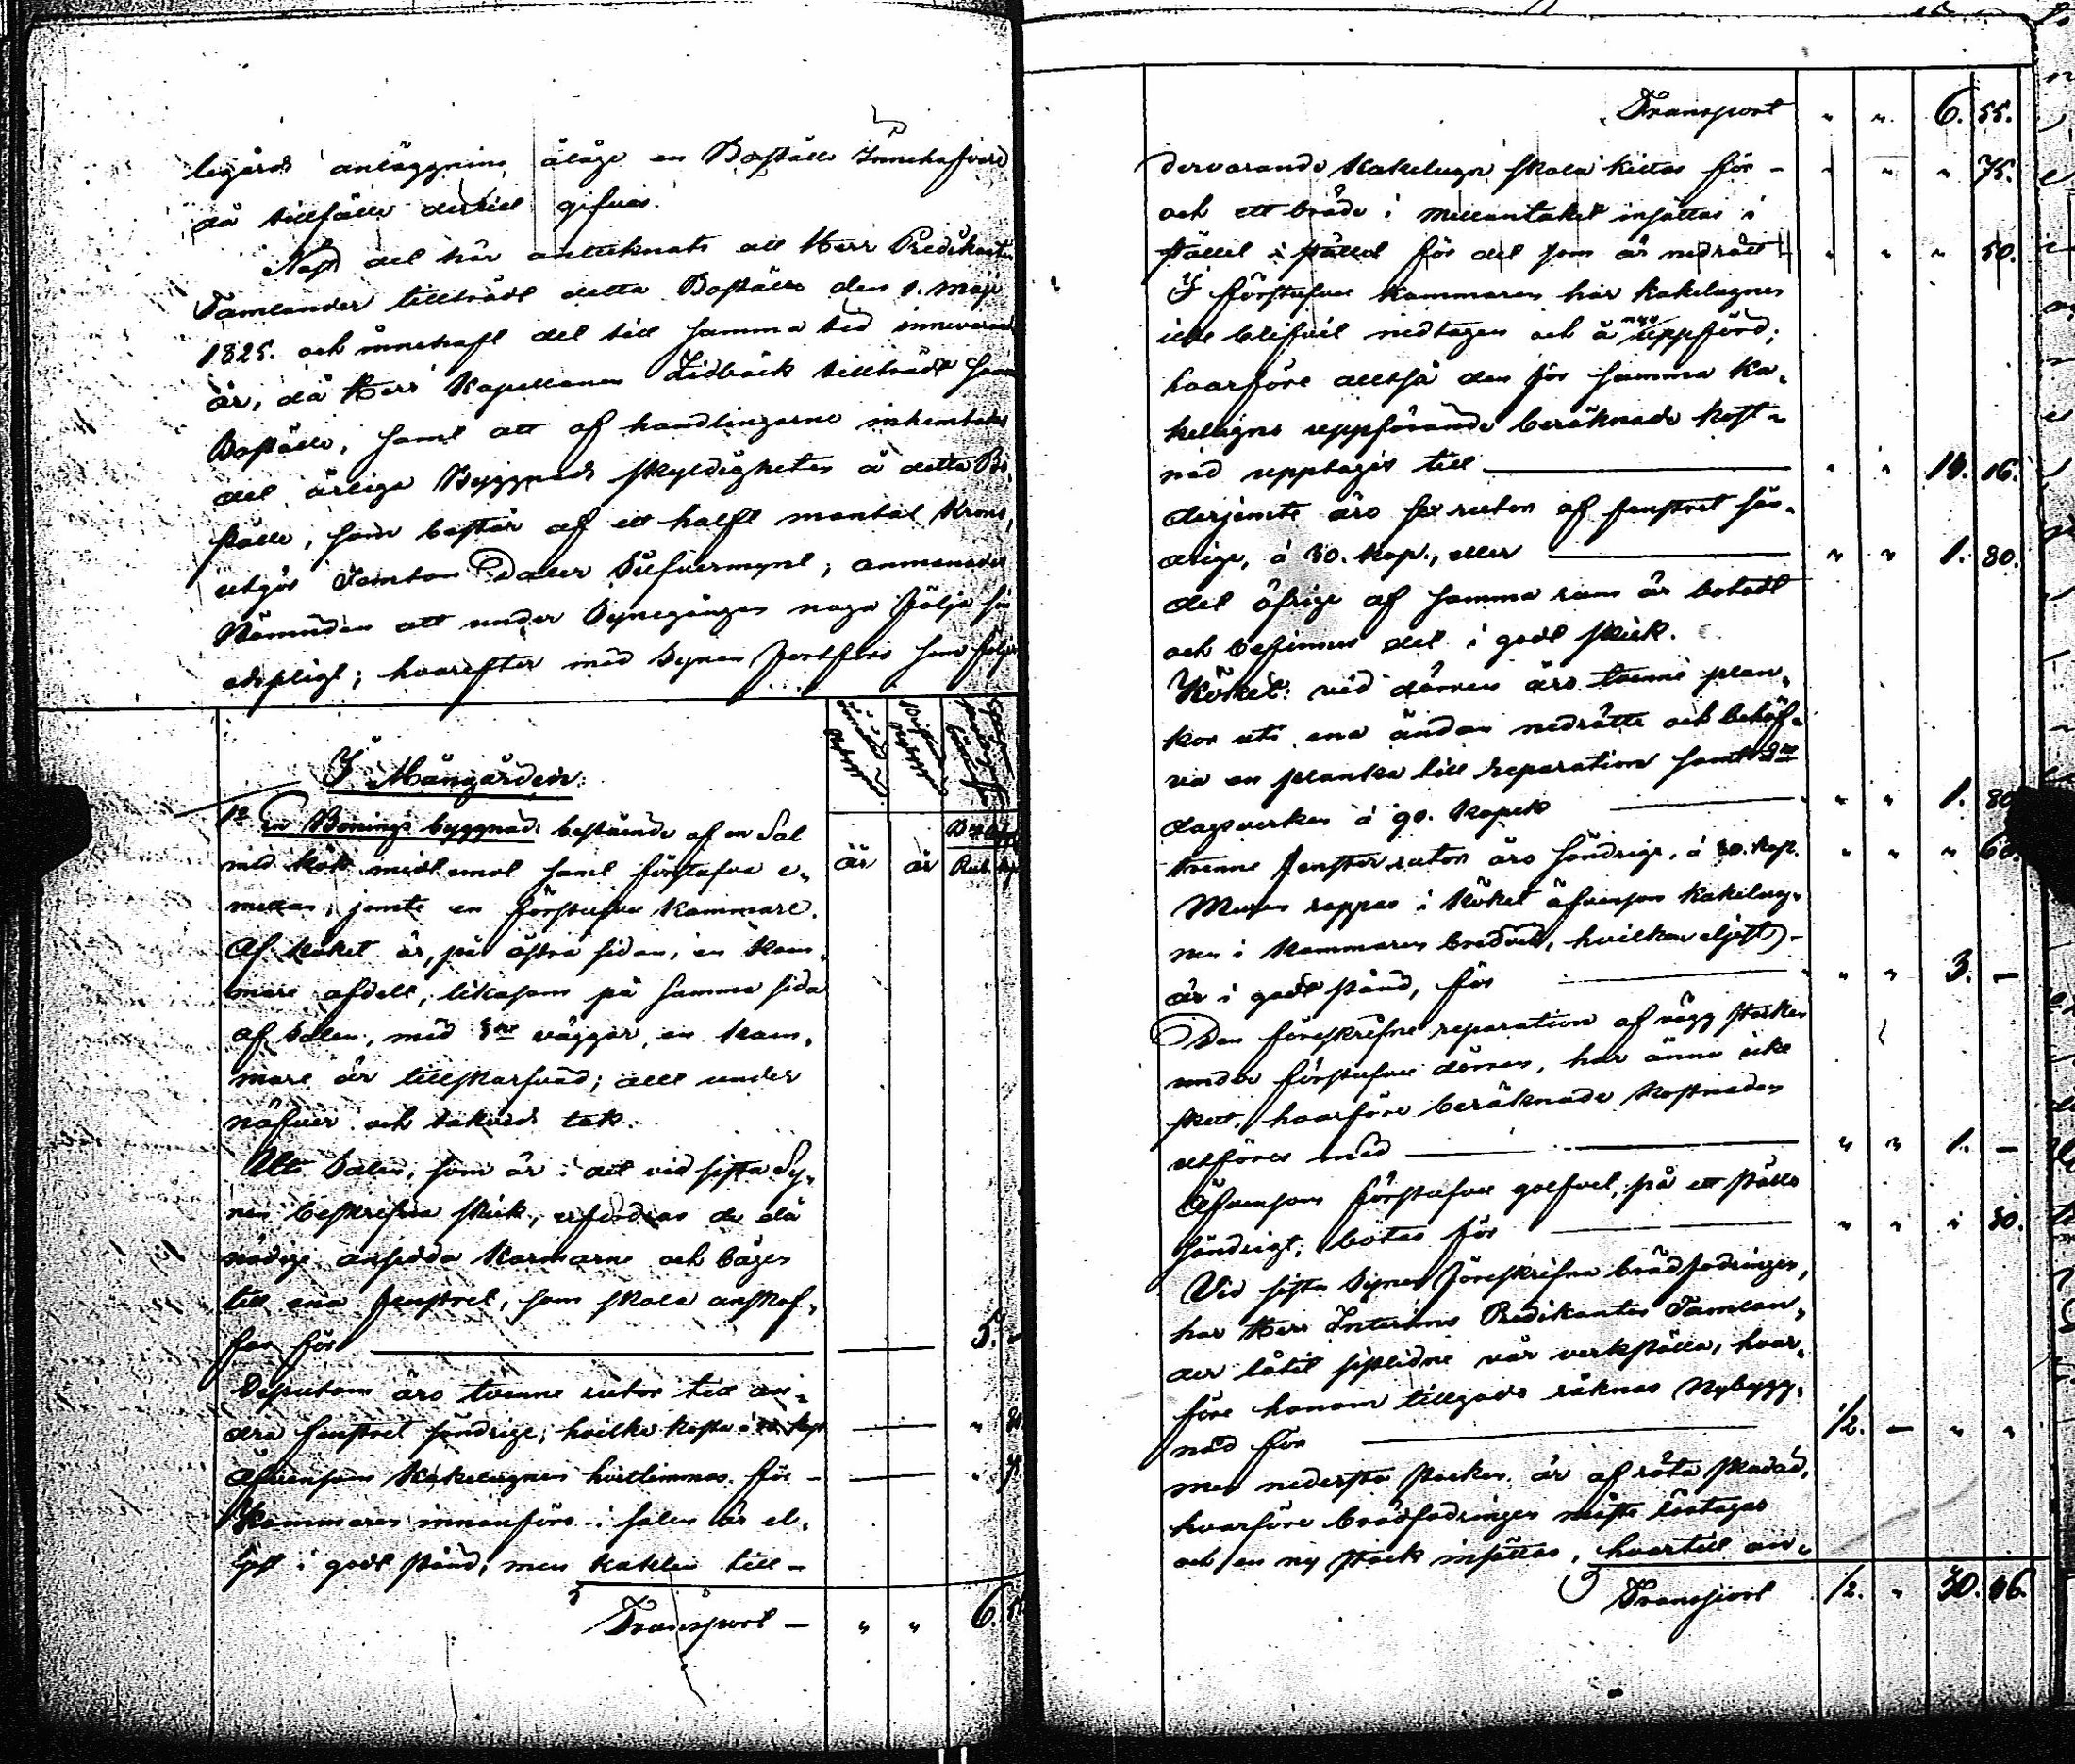 legårds anläggning åläge en Boställs Innehafvare
då tillfälle dertill gifves.
Näst det här antecknats att Herr Predikanten
Tamlander tillträdt detta Boställe den 1. maji
1825. och innehaft det till samma tid innevarande
år, då Herr Kapellanen Lidbäck tillträdt samma
Boställe, samt att af handlingarne inhemtades
det årliga Byggnads skyldigheten å detta Bo,
ställe, som består af ett halft mantal Krono,
utgör Femton Daler Silfvermynt; anmanades
Nämnden att under Synegången noga följa sin
edspligt; hvarefter med Synen fortfors som följer
I Mangården.
1o En Bonings byggnad bestående af en Sal
med kök midt emot samt förstufva e,
mellan, jemte en förstufvu kammare.
Af köket är, på östra sidan, en kam,
mare afdelt, likasom på samma sida
af Salen, med 3ne väggar, en kam,
mare är tillskarfvad; allt under
näfver och takveds tak.
Uti Salen, som är i det vid sista Sy,
nen beskrifna skick, erfordras de då
nödige ansedda karmarne och bågen
till ena fenstret, som skola anskaf,
fas för 5.
Dessutom äro tvenne rutor till an,
dra fenstret söndrige, hvilka kosta à
Äfvensom Kakelugnen hvitlimmas för -
Kammaren innanföre i salen är el,
ljest i godt stånd, men kaklen till -
Transport - " " 6.
år år Rub. kop.
Transport " " 6. 55.
dervarande Kakelugn skola kittas för - " " " 75.
och ett bräde i mellantaket insättas i
stället i stället för det som är nedrått " " " 50.
I förstufvu kammaren har kakelugnen
icke blifvit nedtagen och å nyo uppförd;
hvarföre alltså den för samma ka,
kelugns uppförande beräknade kost,
nad upptages till " " 14. 16.
derjemte äro sex rutor af fenstret sön,
drige, à 30. kop., eller " " 1. 80.
det öfriga af samma rum är botadt
och befinnes det i godt skick.
Köket: vid dörren äro tvenne plan,
kor uti ena ändan nedrötte och behöf,
vas en planka till reparation samt 2ne
dagsverken à 90. kopek " " 1. 80
tvenne fenster rutor äro söndrige, à 30. kop. " " " 60.
Muren rappas i köket äfvensom kakelug,
nen i kammaren bredvid, hvilken eljest
är i godt stånd, för " " 3. -
Den föreskrifne reparation af vägg stocken
under förstufvu dörren, har ännu icke
skett, hvarföre beräknade kostnaden
utföres med " " 1. -
Äfvensom förstufvu golfvet, på ett ställe
söndrigt, botas för " " " 30.
Vid sista Synen föreskrifna brädfodringen,
har Herr Interims Predikanten Tamlan,
der låtit sistlidne vår verkställa, hvar,
före honom tillgodo räknas Nybygg,
nad för 1/2. - " "
men nedersta stocken är af röta skadad,
hvarföre brädfodringen måste löstagas
och en ny stock insättas, hvartill an,
Transport 1/2. " 30. 06.